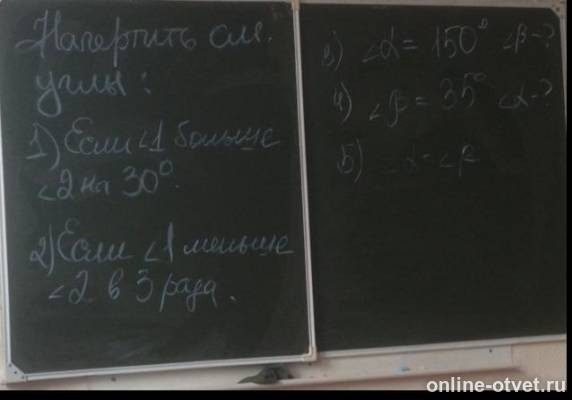 Начертить см.
углы:
1) Если ∠1 больше
∠2 на 30°.
2) Если ∠1 меньше
∠2 в 3 раза.
3) ∠α = 150° ∠β-?
4) ∠β = 35° ∠α-?
5) ∠α = ∠β
online-otvet.ru